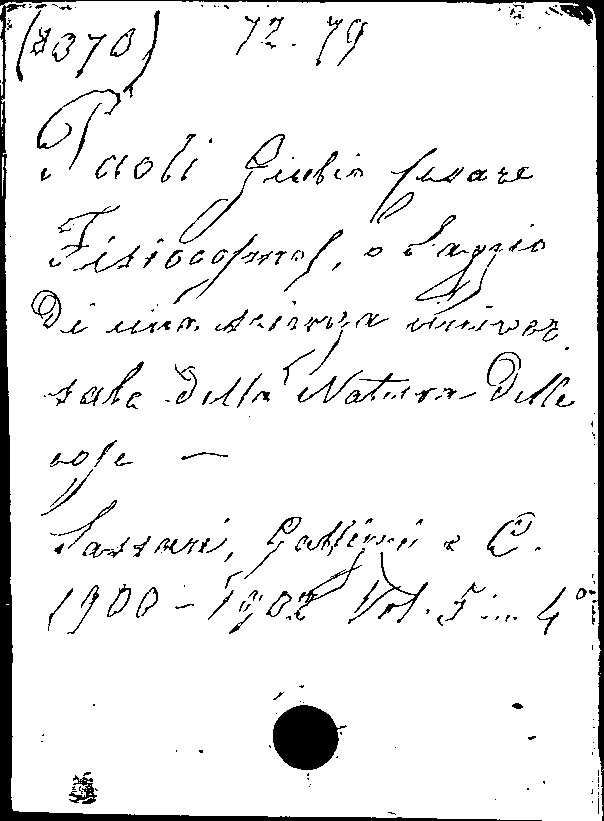 (8370) 72.79
Paoli Giulio Cesare
Fisiocosmos, o Saggio
Di una scienza univer
sale della Natura Delle
cose —
Sassari, Gallizzi e C.
1900-1902 Vol. 5 in 4°